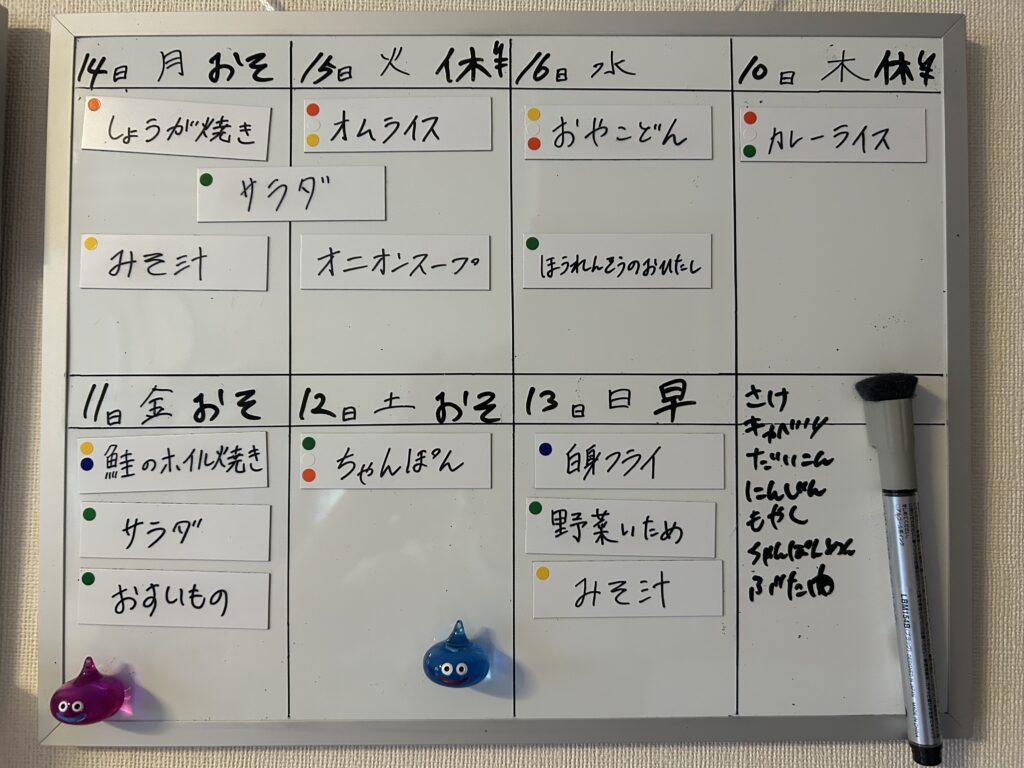 14日 月 おそ
15日 火 休み
16日 水
10日 木 休み
しょうが焼き
オムライス
おやこどん
カレーライス
サラダ
みそ汁
オニオンスープ
ほうれんそうのおひたし
11日 金 おそ
12日 土 おそ
13日 日 早
鮭のホイル焼き
サラダ
おすいもの
ちゃんぽん
白身フライ
野菜いため
みそ汁
さけ
キャベツ
だいこん
にんじん
もやし
ちゃんぽんめん
ぶた肉